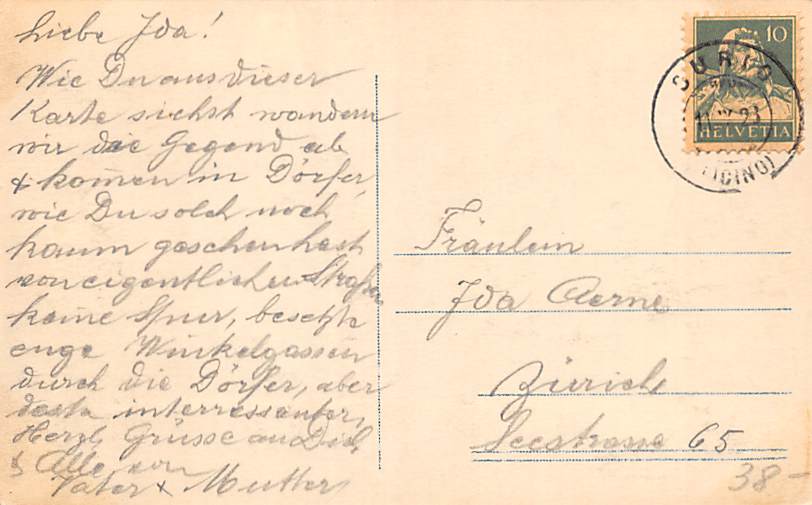 Liebe Ida!
Wie Du aus dieser
Karte siehst wandern
wir die Gegend ab
& kom̄en in Dörfer,
wie Du solch noch
kaum geschen hast
von eigentlichen Straßen
keine Spur,
enge Winkelgassen
durch die Dörfer, aber
desto interressanter,
Herzl. Grüsse an Dich
& Alle von
Vater & Mutter
10
HELVETIA
CURIO
(TICINO)
Fräulein
Ida Aerne
Zürich
Seestrasse 65
38-